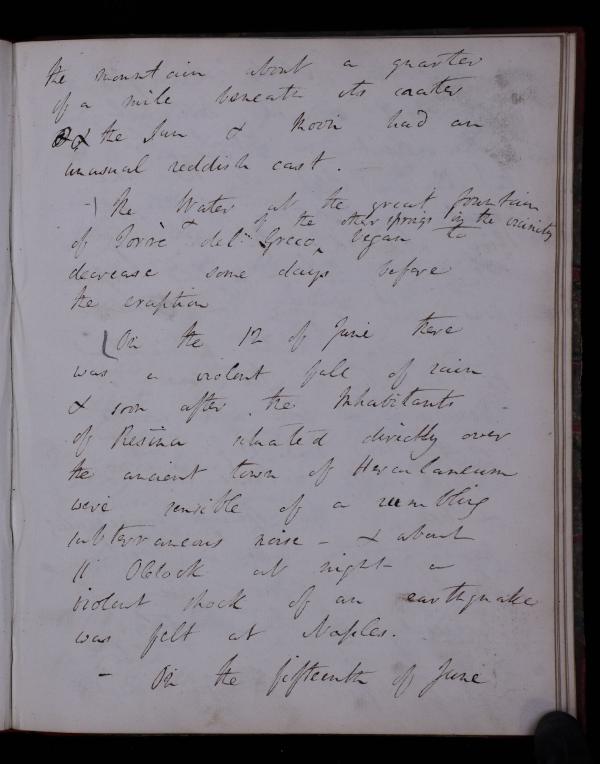 the mountain about a quarter
of a mile beneath its crater
& the Sun & Moon had an
unusual reddish cast. —
- | The Water at the great fountain
& of the other springs in the vicinity
of Torre del Greco, began to
decrease some days before
the eruption
On the 12 of June there
was a violent fall of rain
& soon after the Inhabitants
of Resina situated directly over
the ancient town of Herculaneum
were sensible of a rumbling
subterraneous noise - & about
11 OClock at night a
violent shock of an earthquake
was felt at Naples.
- On the fifteenth of June